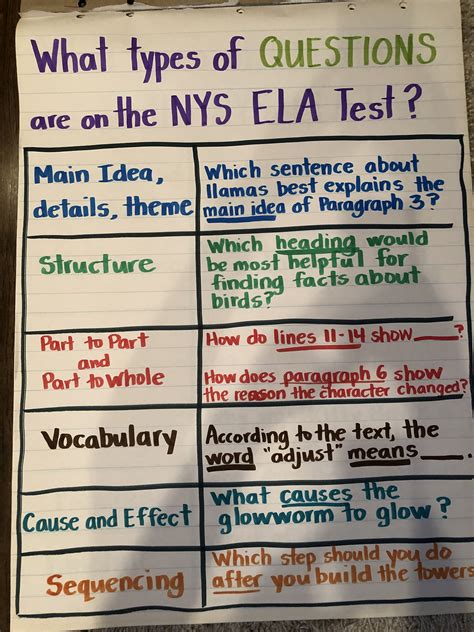 What types of QUESTIONS
are on the NYS ELA Test?
Main Idea,
details, theme
Which sentence about
llamas best explains the
main idea of Paragraph 3?
Structure
Which heading would
be most helpful for
finding facts about
birds?
Part to Part
and
Part to Whole
How do lines 11-14 show____?
How does paragraph 6 show
the reason the character changed?
Vocabulary
According to the text, the
word "adjust" means____.
Cause and Effect
What causes the
glowworm to glow?
Sequencing
Which step should you do
after you build the towers